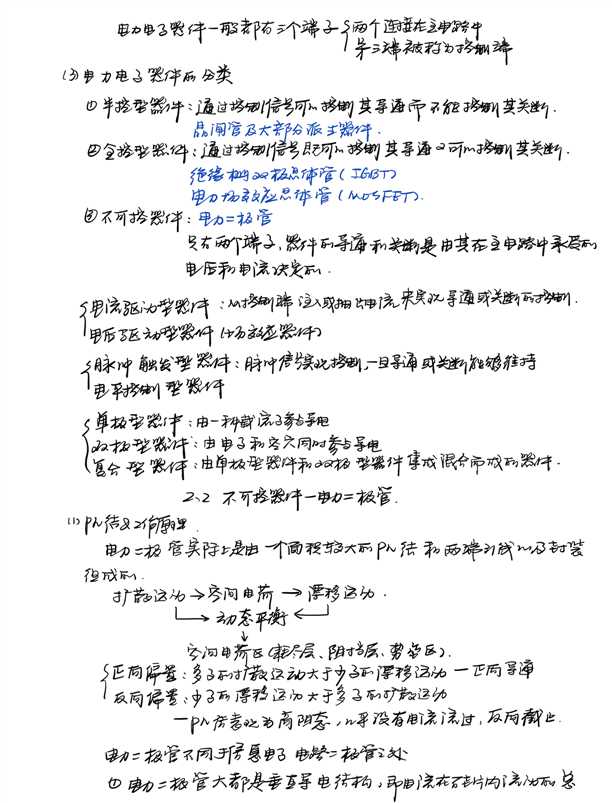 电力电子器件一般都有三个端子{两个连接在主电路中
第三端被称为控制端
(3)电力电子器件的分类
①半控型器件:通过控制信号可以控制其导通而不能控制其关断.
晶闸管及大部分派生器件.
②全控型器件:通过控制信号既可以控制其导通又可以控制其关断.
绝缘栅双极晶体管(IGBT)
电力场效应晶体管(MOSFET).
②不可控器件:电力二极管
只有两个端子,器件的导通和关断是由其在主电路中承受的
电压和电流决定的.
{电流驱动型器件:从控制端注入或抽出电流来实现导通或关断的控制.
电压驱动型器件(场效应器件)
{脉冲触发型器件:脉冲信号实现控制,一旦导通或关断能够维持
电平控制型器件
{单极型器件:由一种载流子参与导电
双极型器件:由电子和空穴同时参与导电
复合型器件:由单极型器件和双极型器件集成混合而成的器件.
2.2 不可控器件—电力二极管.
(1)PN结及工作原理.
电力二极管实际上是由一个面积较大的PN结和两端引线以及封装
组成的.
扩散运动→空间电荷→漂移运动.
→动态平衡←
↓
空间电荷区(耗尽层、阻挡层、势垒区).
{正向偏置:多子的扩散运动大于少子的漂移运动—正向导通
反向偏置:少子的漂移运动大于多子的扩散运动
—PN结表现为高阻态,几乎没有电流流过,反向截止.
电力二极管不同于信息电子电路二极管之处
①电力二极管大都是垂直导电结构,即电流在硅片内流动的总